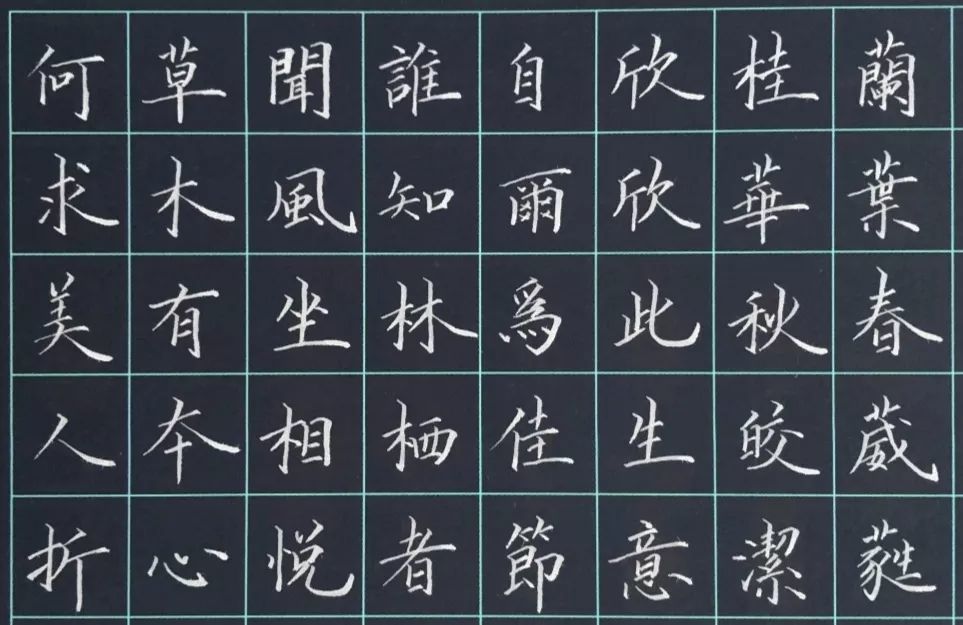 蘭葉春葳蕤
桂華秋皎潔
欣欣此生意
自爾爲佳節
誰知林栖者
聞風坐相悅
草木有本心
何求美人折